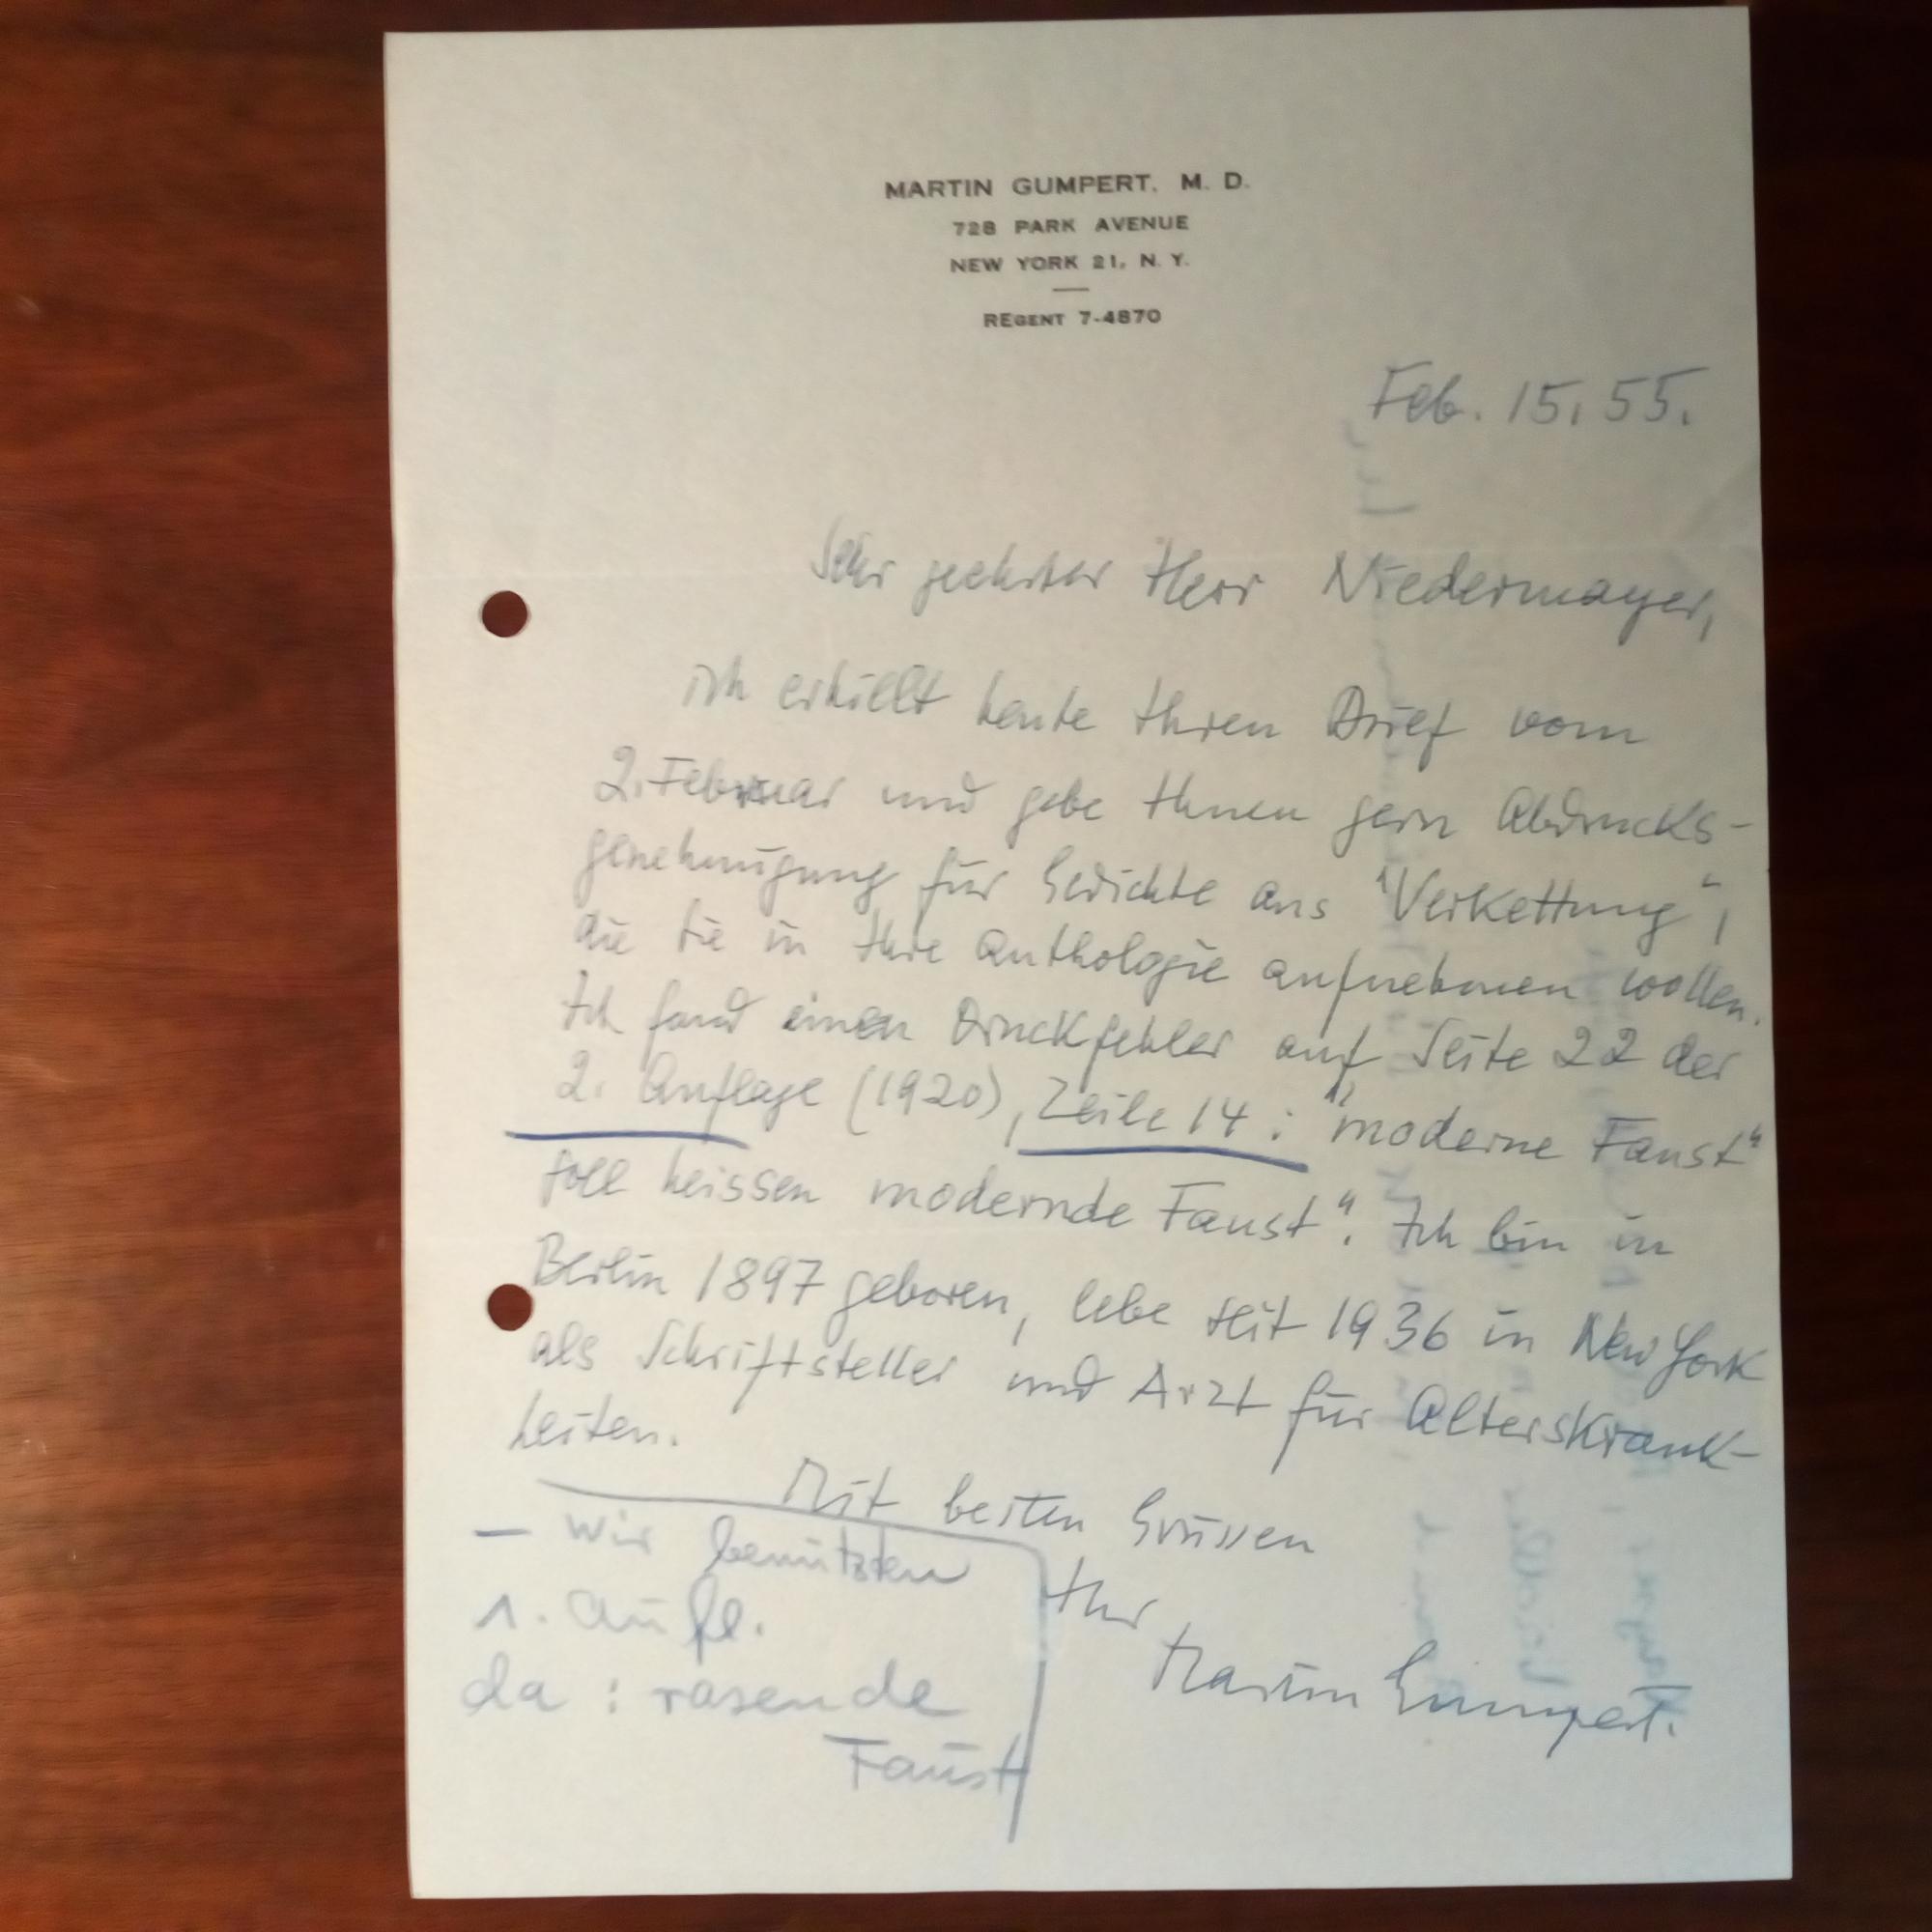 MARTIN GUMPERT, M. D.
728 PARK AVENUE
NEW YORK 21, N. Y.
REGENT 7-4870
Feb. 15. 55.
Sehr geehrter Herr Niedermayer,
ich erhielt heute Ihren Brief vom
2. Februar und gebe Ihnen gern Abdrucks-
genehmigung für Gedichte aus "Verkettung",
die Sie in Ihre Anthologie aufnehmen wollen.
Ich fand einen Druckfehler auf Seite 22 der
2. Auflage (1920), Zeile 14: "moderne Faust"
soll heissen modernde Faust". Ich bin in
Berlin 1897 geboren, lebe seit 1936 in New York
als Schriftsteller und Arzt für Alterskrank-
heiten.
Mit besten Grüssen
Ihr
Martin Gumpert.
— wir benützten
1. Aufl.
da : rasende
Faust